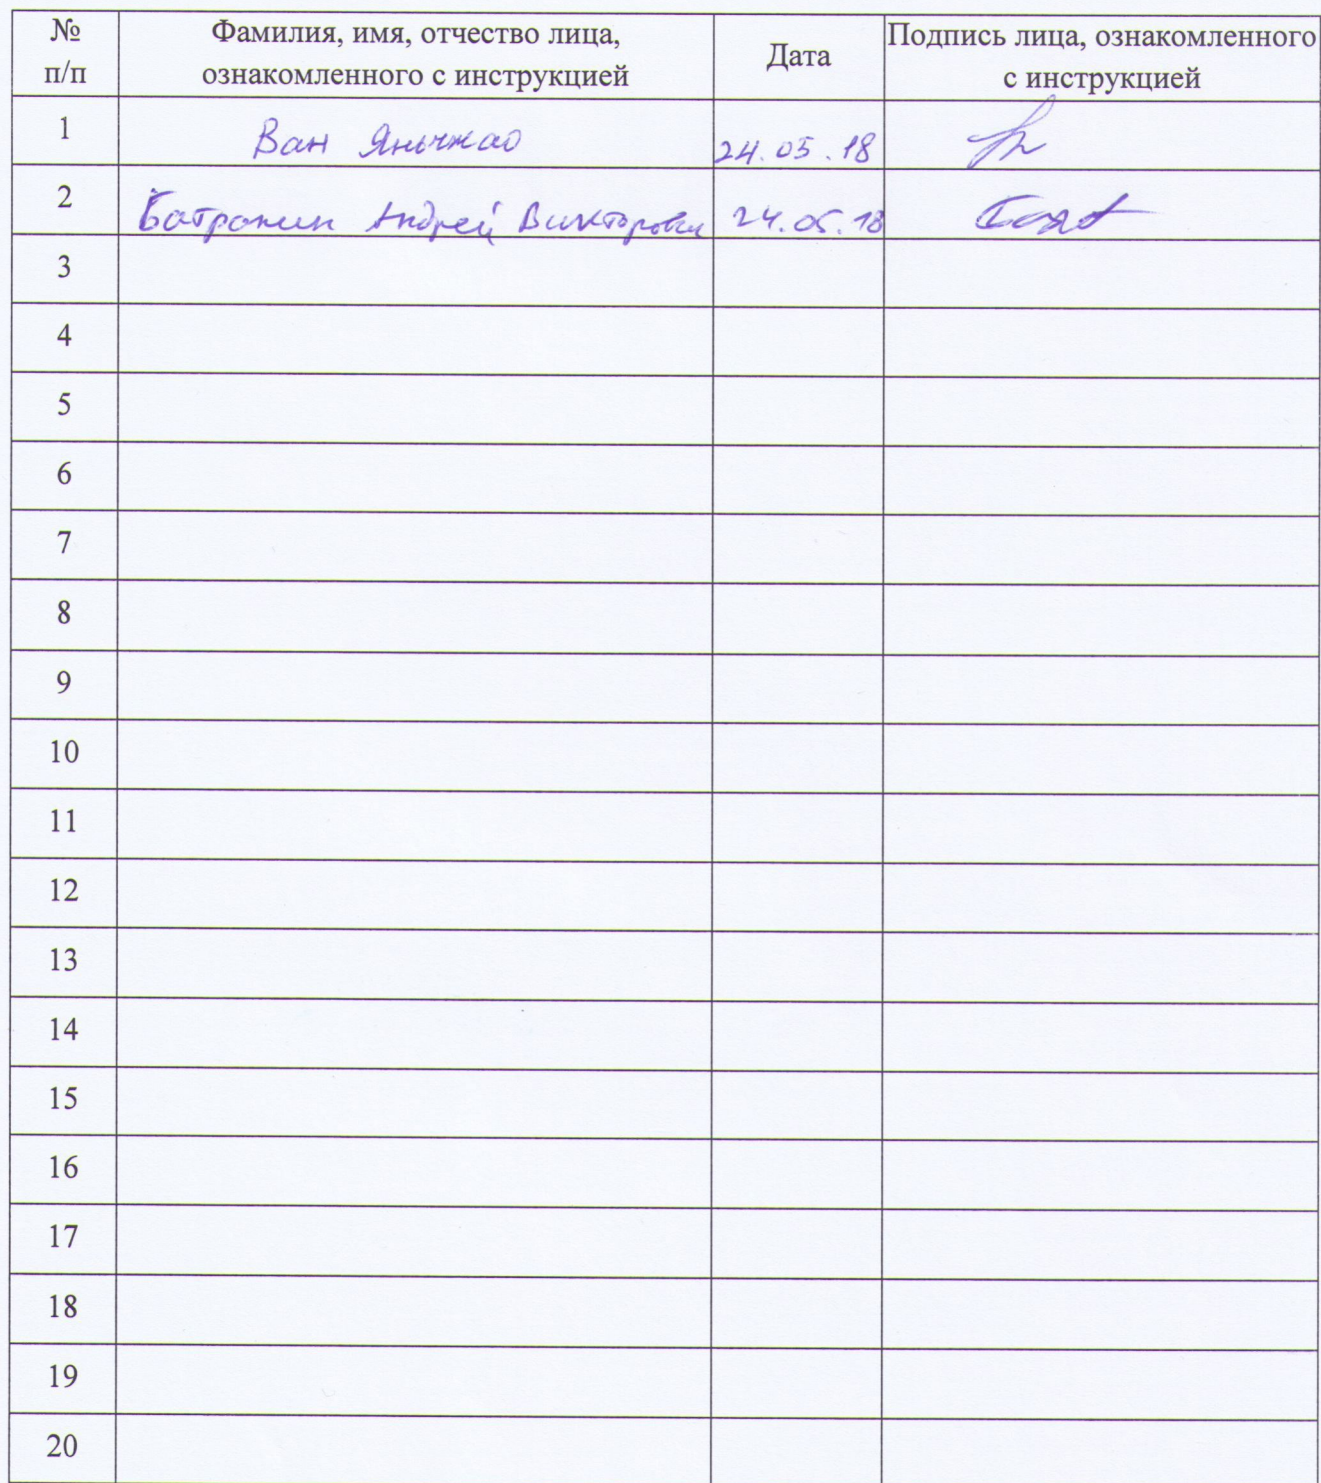 №
п/п
Фамилия, имя, отчество лица,
ознакомленного с инструкцией
Дата
Подпись лица, ознакомленного
с инструкцией
1 Ван Яньчжао 24.05.18
2 Батранин Андрей Викторович 24.05.18
3
4
5
6
7
8
9
10
11
12
13
14
15
16
17
18
19
20